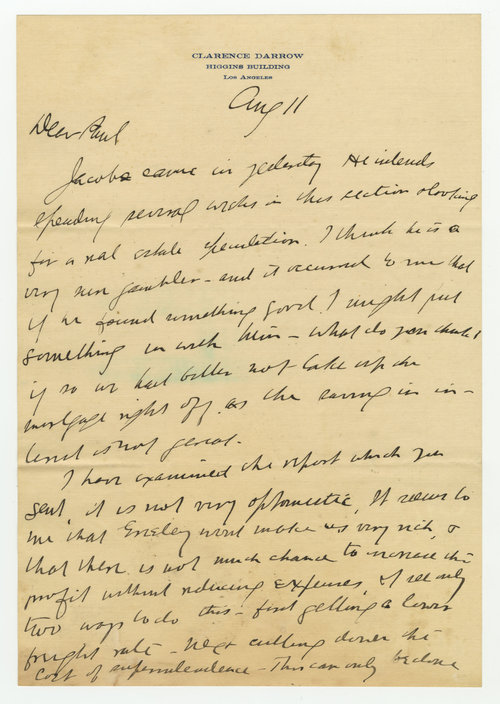 CLARENCE DARROW
HIGGINS BUILDING
LOS ANGELES
Aug 11
Dear Paul
Jacobs came in yesterday He intends
spending several weeks in this section looking
for a real estate speculation. I think he is a
very nice gambler - and it occurred to me that
if he found something good I might put
something in with him - what do you think
if so we had better not take up the
mortgage right off, as the saving in in-
terest is not great.
I have examined the report which you
sent it is not very optomistic, It seems to
me that Greeley wont make us very rich, &
that there is not much chance to increase the
profit without reducing expenses, I see only
two ways to do this - first getting a lower
freight rate - next cutting down the
cost of superintendence - This can only be done